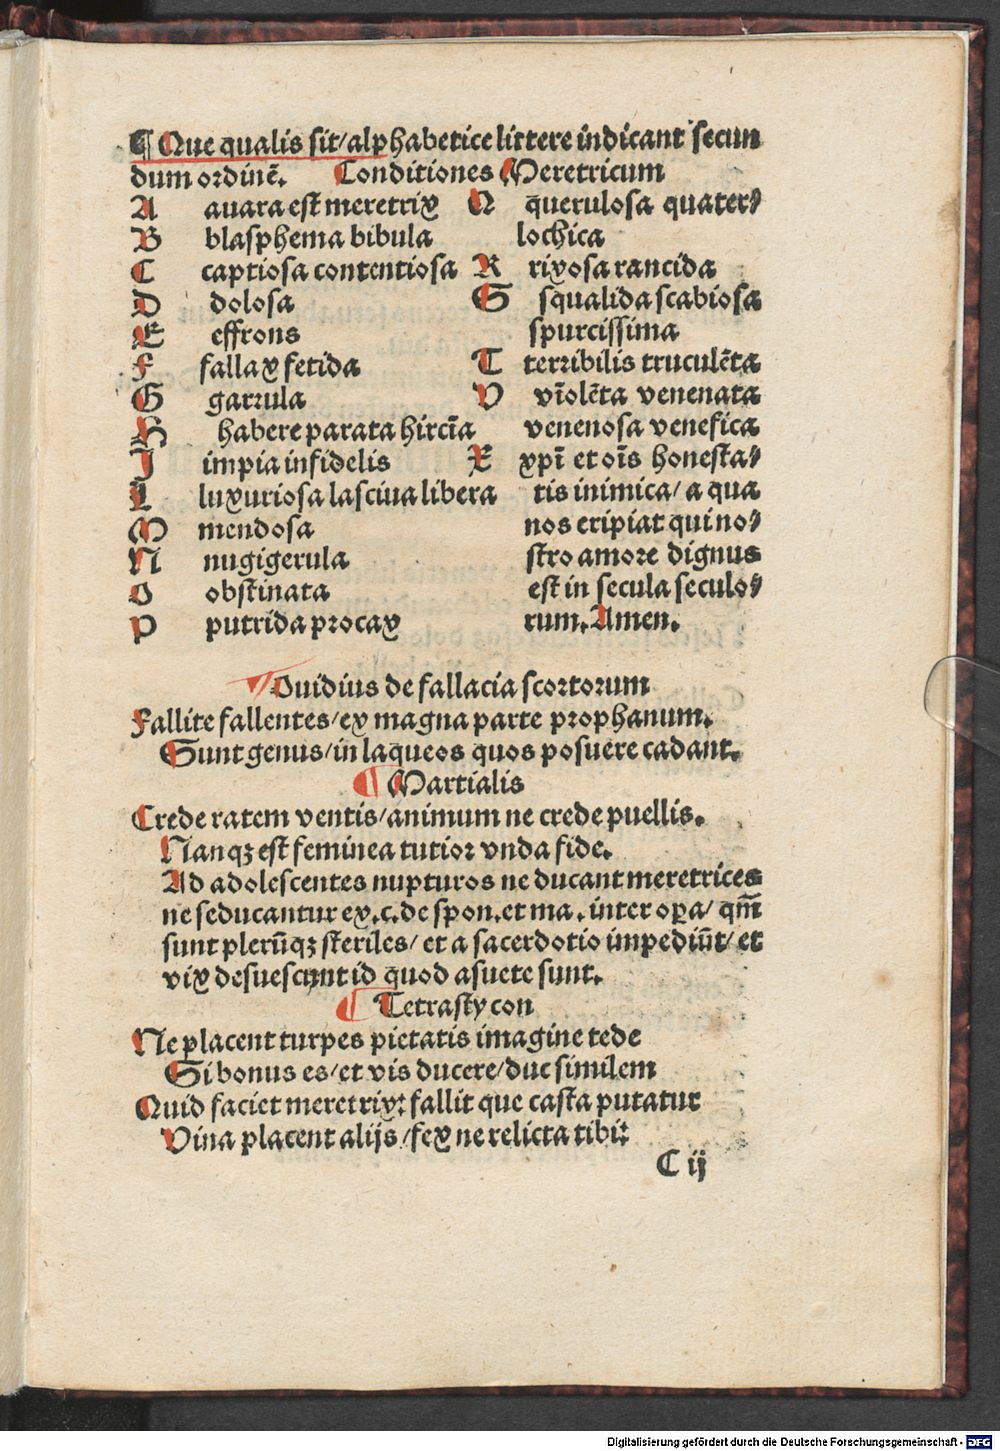 ¶ Que qualis sit/alphabetice littere indicant secun
dum ordinē. Conditiones Meretricum
A auara est meretrix
B blasphema bibula
C captiosa contentiosa
D dolosa
E effrons
F fallax fetida
G garrula
H habere parata hircīa
I impia infidelis
L luxuriosa lasciua libera
M mendosa
N nugigerula
O obstinata
P putrida procax
Q querulosa quater⸗
lochica
R rixosa rancida
S squalida scabiosa
spurcissima
T terribilis truculēta
V violēta venenata
venenosa venefica
X xpī et oīs honesta⸗
tis inimica/ a qua
nos eripiat qui no⸗
stro amore dignus
est in secula seculo⸗
rum. Amen.
¶ Ouidius de fallacia scortorum
Fallite fallentes/ex magna parte prophanum.
Sunt genus/in laqueos quos posuere cadant.
¶ Martialis
Crede ratem ventis/animum ne crede puellis.
Nanqꝫ est feminea tutior vnda fide.
Ad adolescentes nupturos ne ducant meretrices
ne seducantur ex.c.de spon.et ma. inter oꝑa/ qm̄
sunt plerūqꝫ steriles/ et a sacerdotio impediūt/ et
vix desuescunt id quod asuete sunt.
¶ Tetrastycon
Ne placent turpes pietatis imagine tede
Si bonus es/et vis ducere/duc similem
Quid faciet meretrix: fallit que casta putatur
Vina placent alijs/fex ne relicta tibi:
C ij
Digitalisierung gefördert durch die Deutsche Forschungsgemeinschaft - DFG